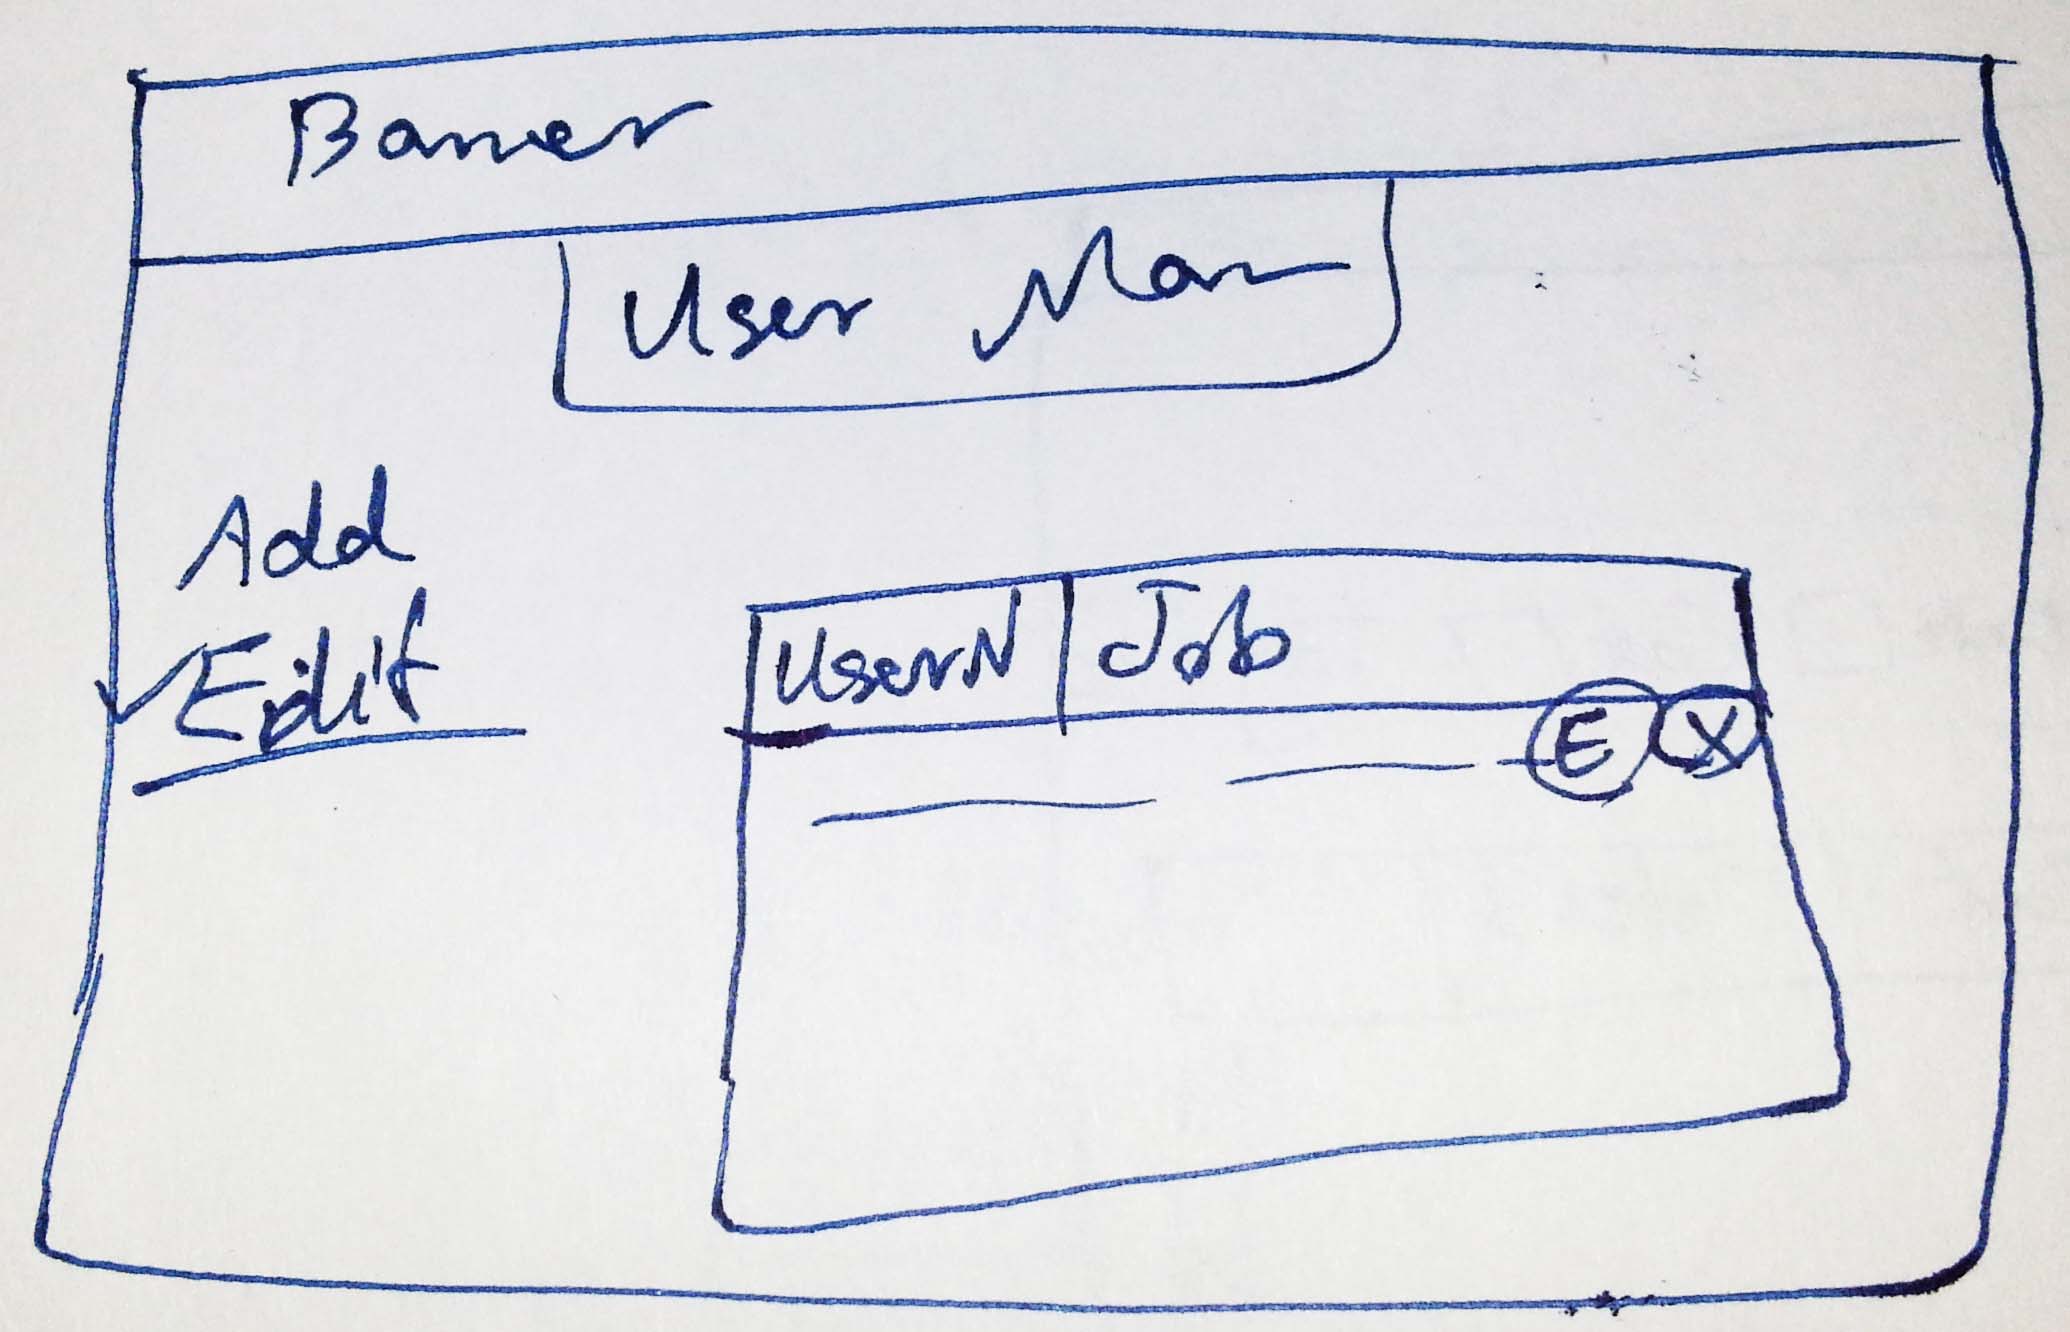 Banner
User Man
Add
Edit
UserN Job
E X